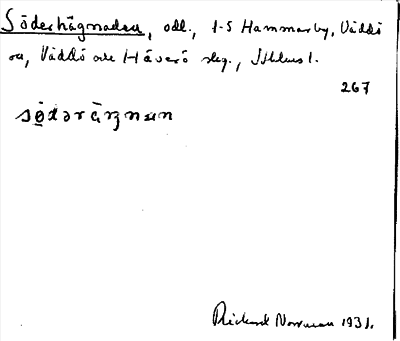 Söderhägnaden, odl., 1-5 Hammarby, Väddö
sn, Väddö och Häverö slg., Sthlms l.
267
södәrä̀ŋnan
Rickard Norrman 1931.